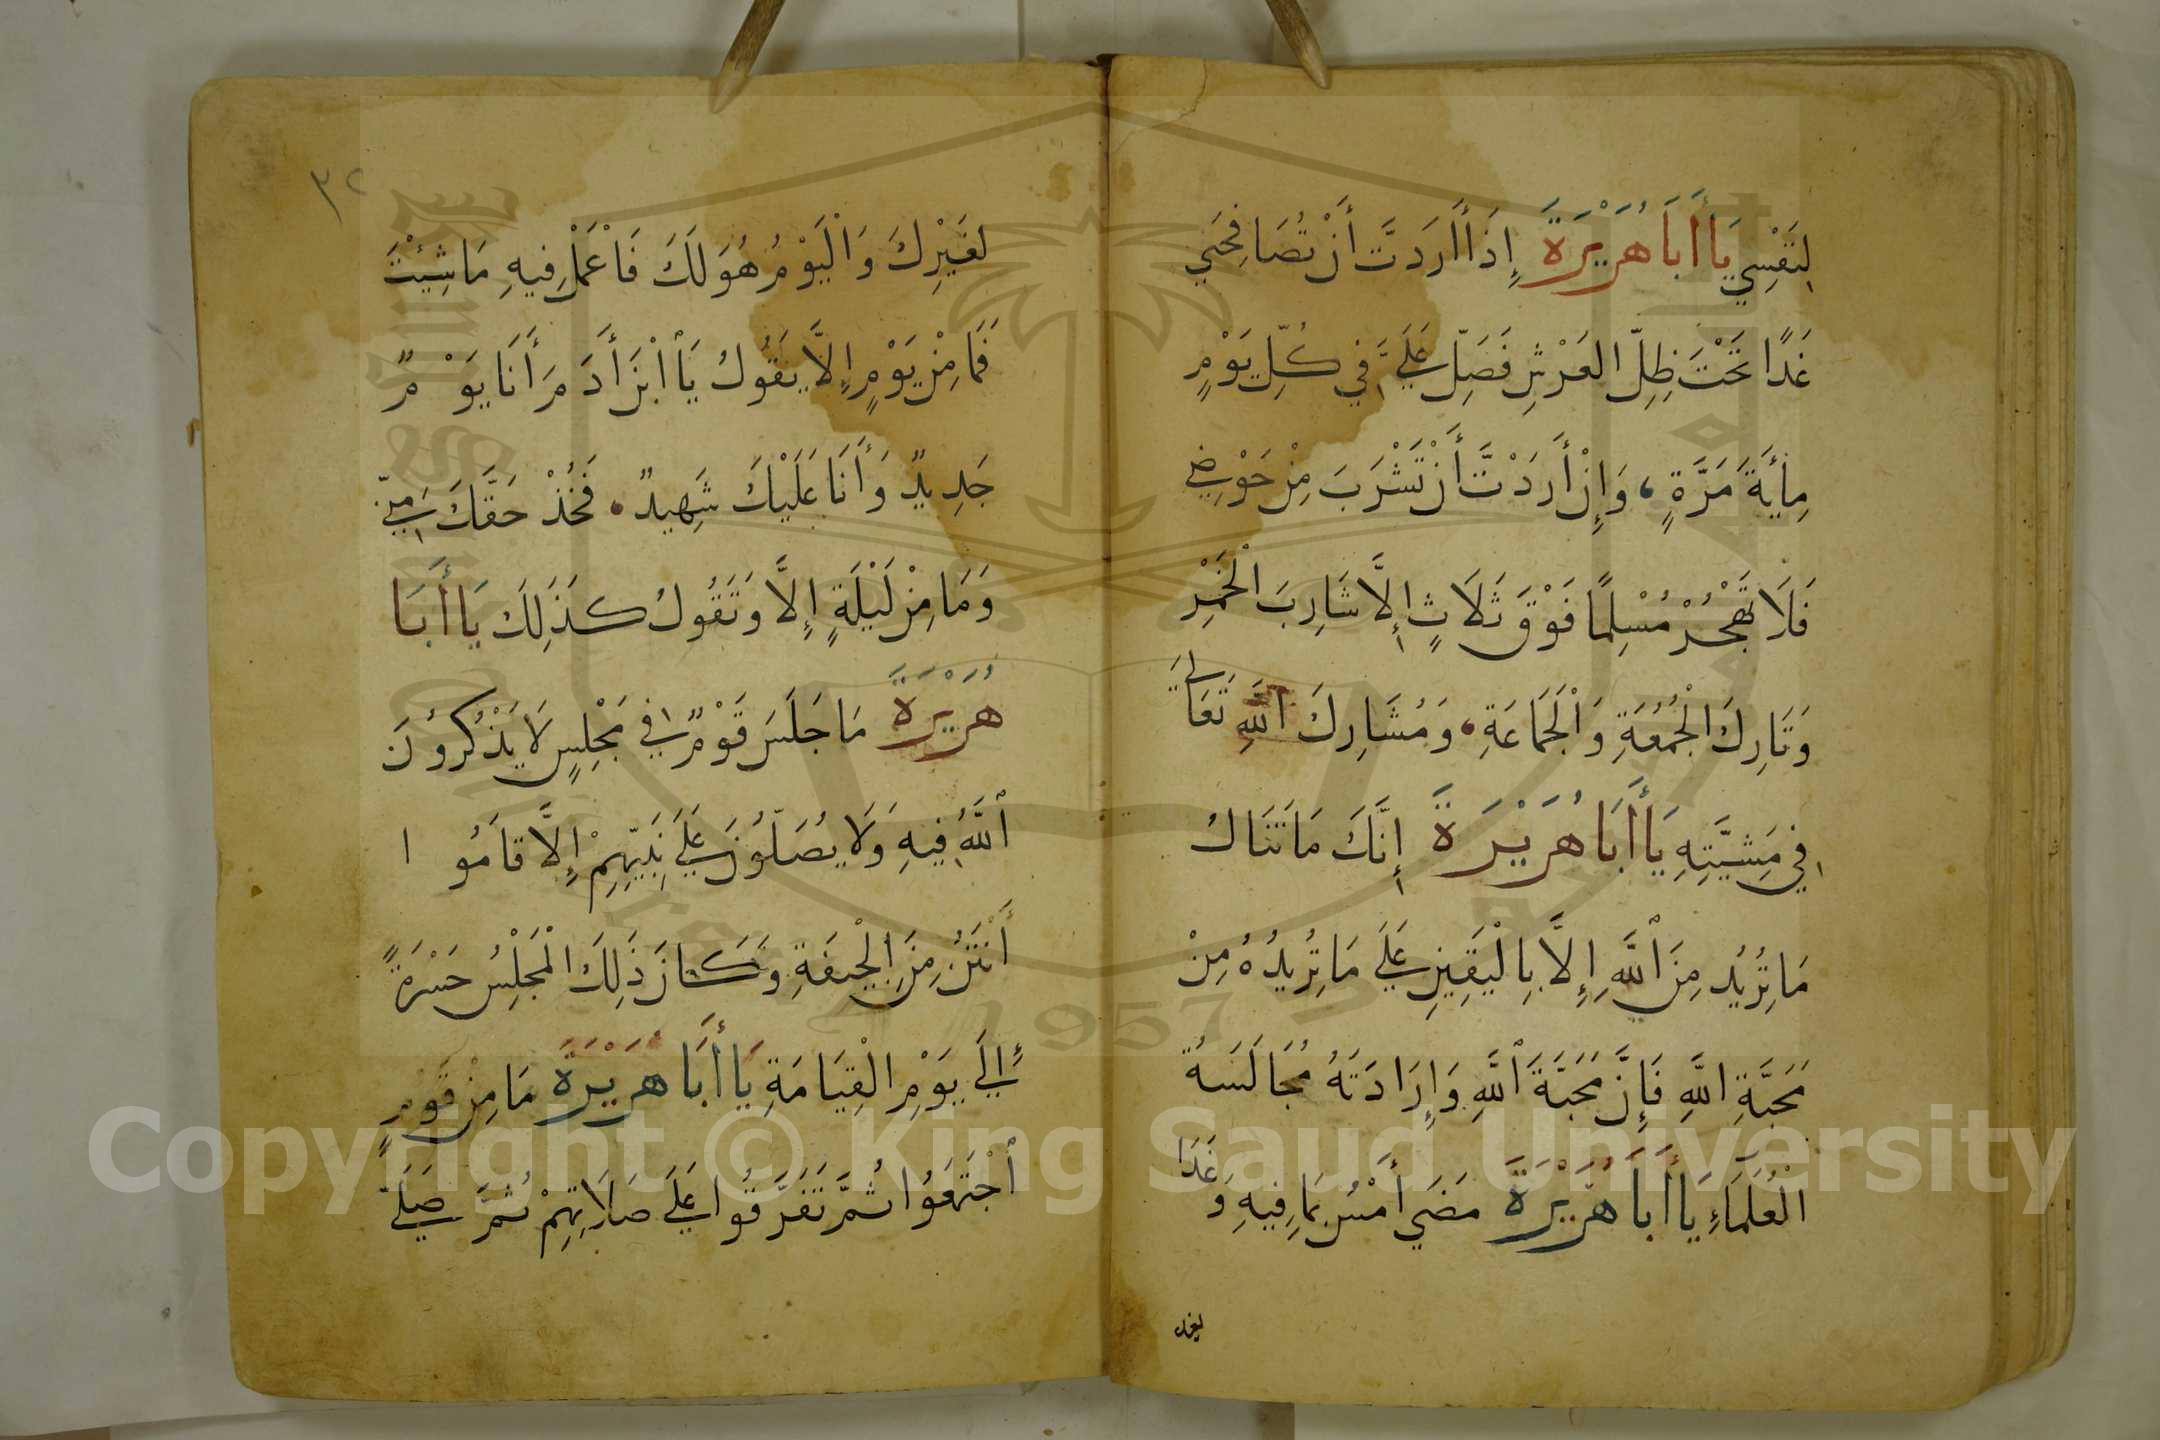 لِنَفْسِي يَا أَبَا هُرَيْرَةَ إِذَا أَرَدتَّ أَنْ تُصَافِحَنِي
غَدًا تَحْتَ ظِلِّ العَرْشِ فَصَلِّ عَلَيَّ فِي كُلِّ يَوْمٍ
مِايَةَ مَرَّةٍ، وَإِنْ أَرَدْتَّ أَنْ تَشْرَبَ مِنْ حَوْضِي
فَلَا تَهْجُرْ مُسْلِمًا فَوْقَ ثَلَاثٍ إِلَّا شَارِبَ الْخَمْرِ
وَتَارِكَ الْجُمُعَةِ وَالْجَمَاعَةِ، وَمُشَارِكَ اللَّهِ تَعَالَى
فِي مَشِيَّتِهِ يَا أَبَا هُرَيْرَةَ إِنَّكَ مَا تَنَالُ
مَا تُرِيْدُ مِنَ اللَّهِ إِلَّا بِالْيَقِينِ عَلَى مَا تُرِيدُهُ مِنْ
مَحَبَّةِ اللَّهِ فَإِنَّ مَحَبَّةَ اللَّهِ وَإِرَادَتَهُ مُجَالَسَةُ
الْعُلَمَاءِ يَا أَبَا هُرَيْرَةَ مَضَى أَمْسُ بِمَا فِيهِ وَغَدَا
لغيرك
٣٢
لغَيْرِكَ وَالْيَوْمُ هُوَ لَكَ فَاعْمَلْ فِيهِ مَا شِئْتَ
فَمَا مِنْ يَوْمٍ إِلَّا يَقُولُ يَا ابْنَ أَدَمَ أَنَا يَوْمٌ
جَدِيدٌ وَأَنَا عَلَيْكَ شَهِيدٌ، فَخُذْ حَقَّكَ مِنِّي
وَمَا مِنْ لَيْلَةٍ إِلَّا وَتَقُولُ كَذَلِكَ يَا أَبَا
هُرَيْرَةَ مَا جَلَسَ قَوْمٌ فِي مَجْلِسٍ لَا يَذْكُرُونَ
اللَّهَ فِيهِ وَلَا يُصَلُّونَ عَلَى نَبِيِّهِمْ إِلَّا قَامُوا
أَنْتَنُ مِنَ الْجِيفَةِ وَكَانَ ذَلِكَ الْمَجْلِسُ حَسْرَةً
إِلَى يَوْمِ الْقِيَامَةِ يَا أَبَا هُرَيْرَةَ مَا مِنْ قَوْمٍ
اجْتَمَعُوا ثُمَّ تَفَرَّقُوا عَلَى صَلَاتِهِمْ ثُمَّ صَلَّى
Copyright © King Saud University
1957